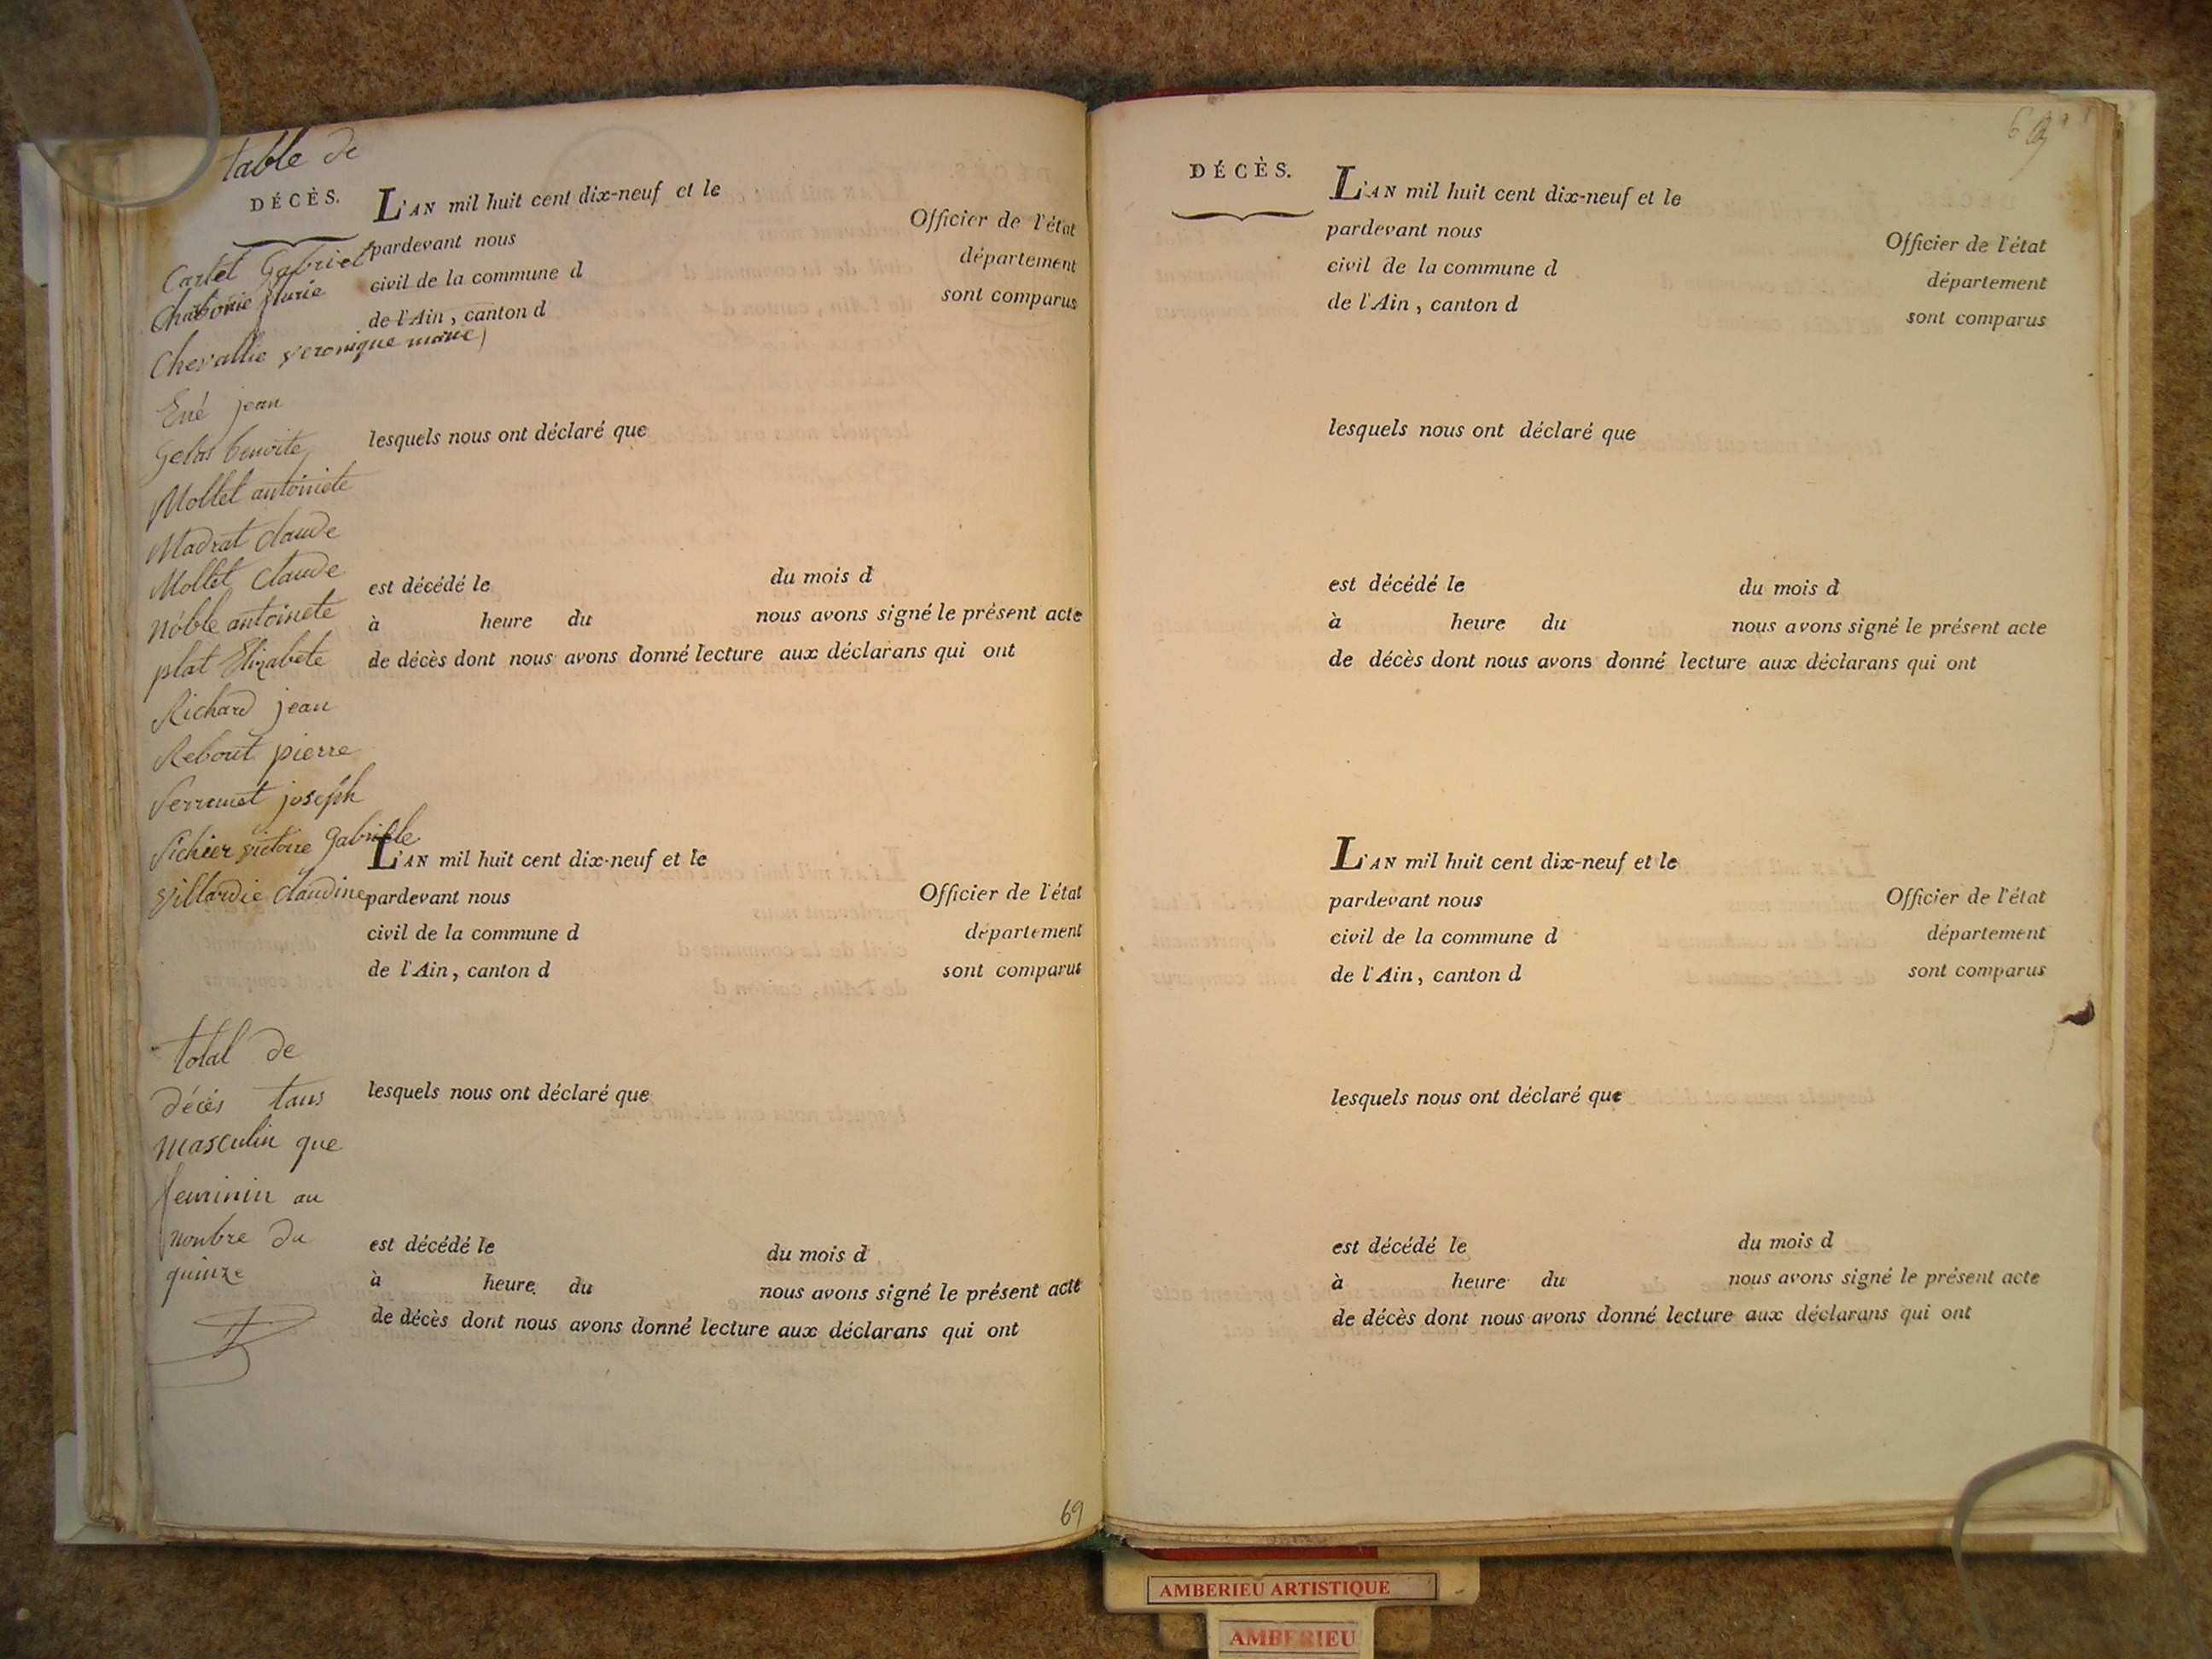 table de
DÉCÈS.
Cartet Gabriel
Chabonie
Chevallie veronique marie
Ené jean
Gelas benoite
Mollet antoinete
Madrat claude
Mollet Claude
Noble antoinete
plat Elizabete
Richard jean
Rebout pierre
joseph
Sichier victoire Gabrielle
Villardie claudine
total de
décès tans
masculin que
feminin au
nonbre du
quinze
L'AN mil huit cent dix-neuf et le
pardevant nous Officier de l'état
civil de la commune d département
de l'Ain, canton d sont comparus
lesquels nous ont déclaré que
est décédé le du mois d
à heure du nous avons signé le présent acte
de décès dont nous avons donné lecture aux déclarans qui ont
L'AN mil huit cent dix-neuf et le
pardevant nous Officier de l'état
civil de la commune d département
de l'Ain, canton d sont comparus
lesquels nous ont déclaré que
est décédé le du mois d
à heure du nous avons signé le présent acte
de décès dont nous avons donné lecture aux déclarans qui ont
69
DÉCÈS.
L'AN mil huit cent dix-neuf et le
pardevant nous Officier de l'état
civil de la commune d département
de l'Ain, canton d sont comparus
lesquels nous ont déclaré que
est décédé le du mois d
à heure du nous avons signé le présent acte
de décès dont nous avons donné lecture aux déclarans qui ont
L'AN mil huit cent dix-neuf et le
pardevant nous Officier de l'état
civil de la commune d département
de l'Ain, canton d sont comparus
lesquels nous ont déclaré que
est décédé le du mois d
à heure du nous avons signé le présent acte
de décès dont nous avons donné lecture aux déclarans qui ont
AMBERIEU ARTISTIQUE
AMBERIEU